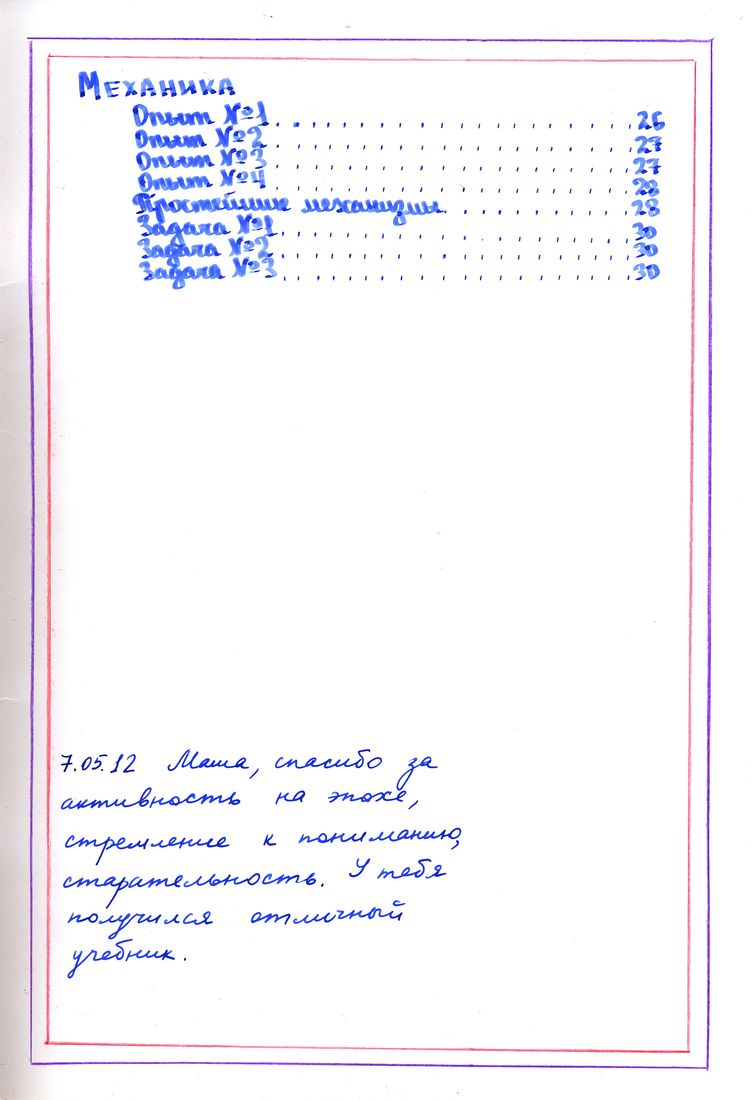 Механика
Опыт №1 . . . . . . . . . . . . . . . . . . . . 26
Опыт №2 . . . . . . . . . . . . . . . . . . . . 27
Опыт №3 . . . . . . . . . . . . . . . . . . . . 27
Опыт №4 . . . . . . . . . . . . . . . . . . . . 28
Простейшие механизмы . . . . . . . . . . 28
Задача №1 . . . . . . . . . . . . . . . . . . . 30
Задача №2 . . . . . . . . . . . . . . . . . . . 30
Задача №3 . . . . . . . . . . . . . . . . . . . 30
7.05.12 Маша, спасибо за
активность на эпохе,
стремление к пониманию,
старательность. У тебя
получился отличный
учебник.